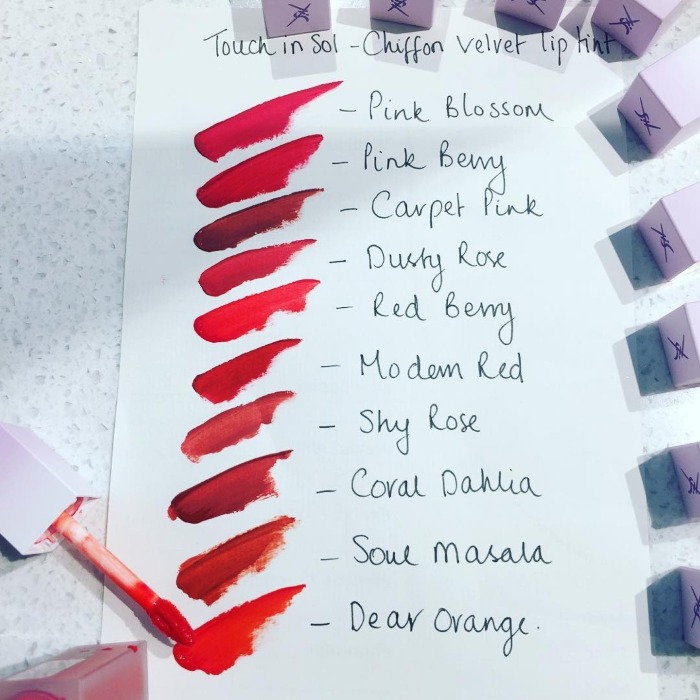 Touch in Sol - Chiffon Velvet lip tint
- Pink Blossom
- Pink Berry
- Carpet Pink
- Dusty Rose
- Red Berry
- Modern Red
- Shy Rose
- Coral Dahlia
- Soul Masala
- Dear Orange.